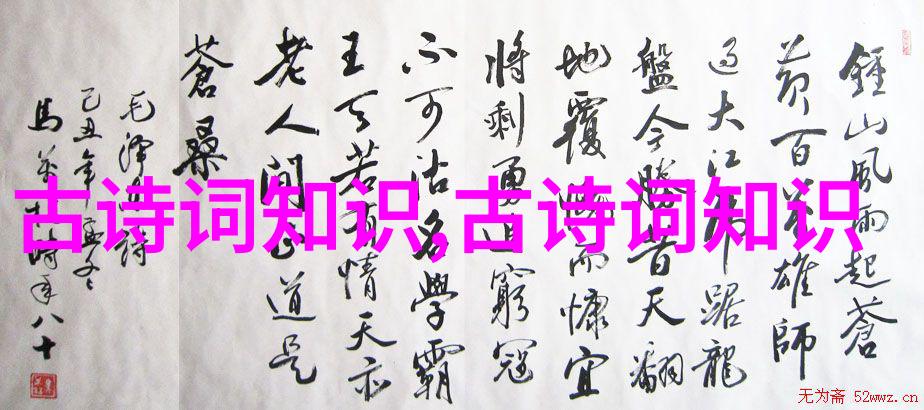 鍾山風雨起蒼
黃百萬雄師
過大江虎踞龍
盤今勝昔天翻
地覆慨而慷宜
將剩勇追窮寇
不可沽名學霸
王天若有情天亦
老人間正道是
蒼桑
毛澤東詩
己丑年孟冬
馬 時年八十
古诗词知识,古诗词知识
无为斋 52wwz.cn